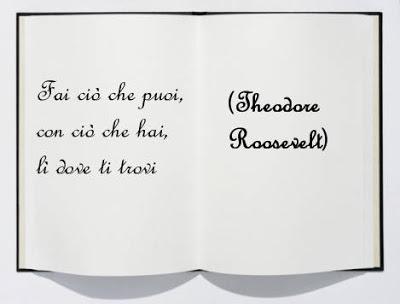 Fai ciò che puoi,
con ciò che hai,
lì dove ti trovi
(Theodore
Roosevelt)